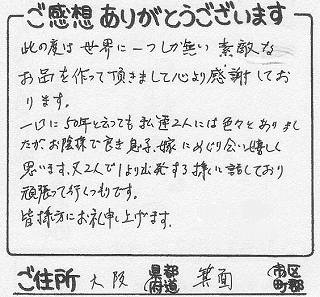 ご感想ありがとうございます
此の度は世界に一つしか無い素敵な
お品を作って頂きまして心より感謝してお
ります。
一口に50年と云っても私達2人には色々とありまし
たがお陰様で良き息子、嫁にめぐり合い嬉しく
思います。又2人で1より出発する様に話しており
頑張って行くつもりです。
皆様方にお礼申し上げます。
ご住所 大阪 都道府県 箕面 市区町郡